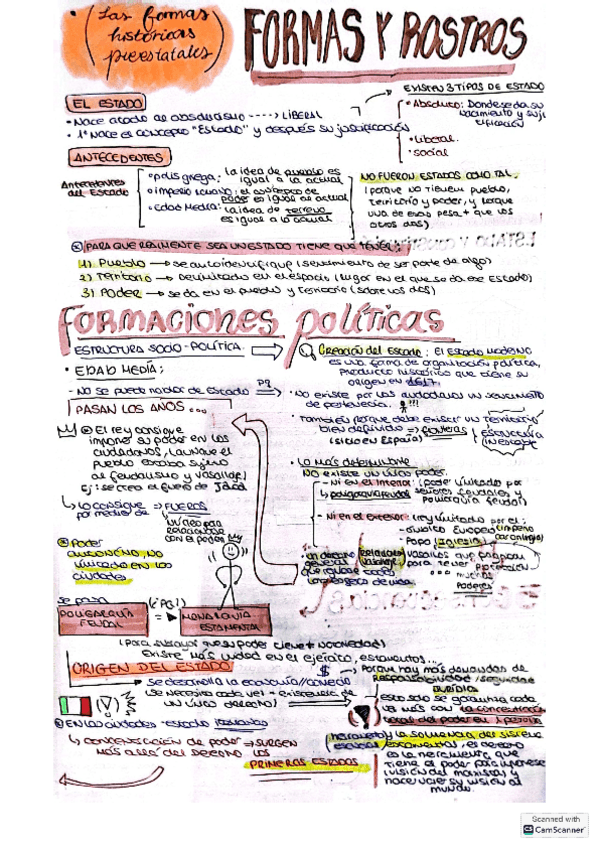 • (Las formas
históricas
preestatales)
FORMAS Y ROSTROS
EL ESTADO
• Nace acorde al absolutismo ----> LIBERAL
• 1º Nace el concepto "Estado" y después su justificación
EXISTEN 3 TIPOS DE ESTADO
• Absoluto: Donde se da su
nacimiento y
• Liberal.
• social
ANTECEDENTES
Antecedentes
del Estado
• polis griega: la idea de pueblo es
igual a la actual
• imperio romano: el concepto de
poder es igual al actual
• Edad Media: la idea de terreno
es igual a la actual
NO FUERON ESTADOS COMO TAL.
(porque no tienen pueblo,
territorio y poder, y porque
una de esas pesa + que los
otros dos)
PARA QUE REALMENTE SEA UN ESTADO TIENE QUE TENER:
1) Pueblo → se autoidentifique (sentimiento de ser parte de algo)
2) Territorio → Delimitado en el espacio (lugar en el que se da ese Estado)
3) Poder → se da en el pueblo y territorio (sobre los dos)
FORMACIONES políticas
ESTRUCTURA SOCIO-POLÍTICA.
• EDAD MEDIA:
- No se puede hablar de Estado
PQ
Creación del Estado: El Estado moderno
es una forma de organización política,
producto histórico que tiene su
origen en
• No existe por los ciudadanos un sentimiento
de pertenencia. !!!
• También porque debe existir un territorio
bien definido → fronteras
(sicro en España)
estructura
inestable
PASAN LOS AÑOS ...
El rey consigue
imponer su poder en los
ciudadanos, (aunque el
pueblo estaba sujeto
al feudalismo y vasallaje)
Ej: se creó el fuero de Jaca
↳ Lo consigue → FUEROS
por medio de
vínculo para
relacionarse
con el poder
• Lo más determinante
NO existe un único poder.
- Ni en el Interior: (poder limitado por
señores feudales y
poliarquía feudal)
- Ni en el Exterior: (rey limitado por el:
- Ámbito Europeo (imperio
carolingio)
- Papa (iglesia)
• un derecho
general
que iguale
relaciones
vasallaje
vasallos que pagaban
para tener protección
... muchos
Poderes
Poder
autónomo, no
vinculado en los
ciudades
se pasa
POLIARQUÍA
FEUDAL
(¿PQ?)
MONARQUÍA
ESTAMENTAL
(para subrayar que su poder tiene + notoriedad)
Existe más unidad en el ejército, estamentos...
ORIGEN DEL ESTADO
→ se desarrolla la economía//dinero
se necesita cada vez + existencia de
un único derecho)
$ → Porque hay más demandas de
Responsabilidad/seguridad
jurídica
↳ esto solo se garantiza cada
vez más con la concentración
total del poder en 1 persona
En las ciudades-estado italianas
↳ concentración de poder → SURGEN
más allá del derecho los
PRIMEROS ESTADOS
es la herramienta que
tiene el poder para imponerse
(visión del marxista) y
hacer ver su visión al
mundo.
Scanned with
CamScanner